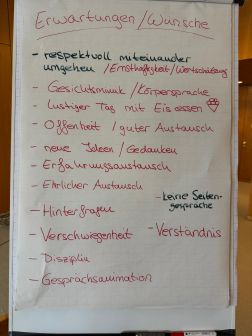 Erwartungen/Wünsche
- respektvoll miteinander
umgehen /Ernsthaftigkeit/Wertschätzung
- Gesichtsmimik/Körpersprache
- lustiger Tag mit Eis essen
- Offenheit / guter Austausch
- neue Ideen/Gedanken
- Erfahrungsaustausch
- Ehrlicher Austausch
- keine Seiten-
gespräche
- Hinterfragen
- Verschwiegenheit
- Verständnis
- Disziplin
- Gesprächsanimation